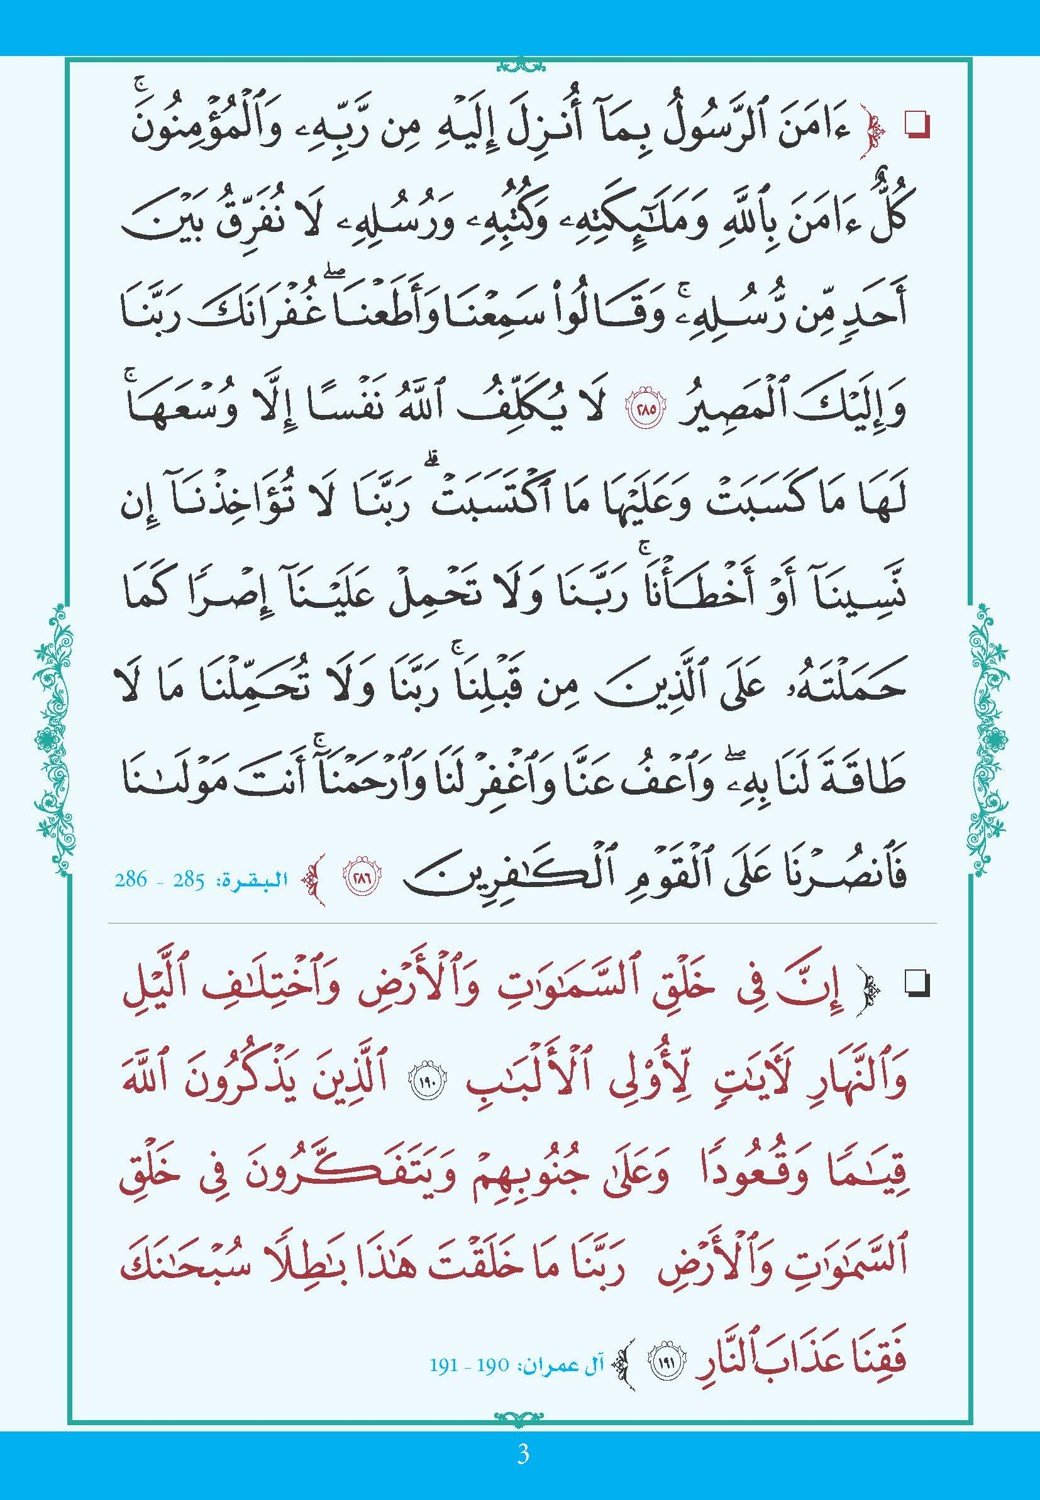 ❑ ﴿ ءَامَنَ ٱلرَّسُولُ بِمَآ أُنزِلَ إِلَيْهِ مِن رَّبِّهِۦ وَٱلْمُؤْمِنُونَۚ
كُلٌّ ءَامَنَ بِٱللَّهِ وَمَلَـٰٓئِكَتِهِۦ وَكُتُبِهِۦ وَرُسُلِهِۦ لَا نُفَرِّقُ بَيْنَ
أَحَدٍ مِّن رُّسُلِهِۦۚ وَقَالُوا۟ سَمِعْنَا وَأَطَعْنَاۖ غُفْرَانَكَ رَبَّنَا
وَإِلَيْكَ ٱلْمَصِيرُ ٢٨٥ لَا يُكَلِّفُ ٱللَّهُ نَفْسًا إِلَّا وُسْعَهَاۚ
لَهَا مَا كَسَبَتْ وَعَلَيْهَا مَا ٱكْتَسَبَتْۗ رَبَّنَا لَا تُؤَاخِذْنَآ إِن
نَّسِينَآ أَوْ أَخْطَأْنَاۚ رَبَّنَا وَلَا تَحْمِلْ عَلَيْنَآ إِصْرًا كَمَا
حَمَلْتَهُۥ عَلَى ٱلَّذِينَ مِن قَبْلِنَاۚ رَبَّنَا وَلَا تُحَمِّلْنَا مَا لَا
طَاقَةَ لَنَا بِهِۦۖ وَٱعْفُ عَنَّا وَٱغْفِرْ لَنَا وَٱرْحَمْنَآۚ أَنتَ مَوْلَىٰنَا
فَٱنصُرْنَا عَلَى ٱلْقَوْمِ ٱلْكَـٰفِرِينَ ٢٨٦ ﴾ البقرة: 285 - 286
❑ ﴿ إِنَّ فِى خَلْقِ ٱلسَّمَـٰوَٰتِ وَٱلْأَرْضِ وَٱخْتِلَـٰفِ ٱلَّيْلِ
وَٱلنَّهَارِ لَـَٔايَـٰتٍ لِّأُو۟لِى ٱلْأَلْبَـٰبِ ١٩٠ ٱلَّذِينَ يَذْكُرُونَ ٱللَّهَ
قِيَـٰمًا وَقُعُودًا وَعَلَىٰ جُنُوبِهِمْ وَيَتَفَكَّرُونَ فِى خَلْقِ
ٱلسَّمَـٰوَٰتِ وَٱلْأَرْضِ رَبَّنَا مَا خَلَقْتَ هَـٰذَا بَـٰطِلًا سُبْحَـٰنَكَ
فَقِنَا عَذَابَ ٱلنَّارِ ١٩١ ﴾ آل عمران: 190 - 191
3